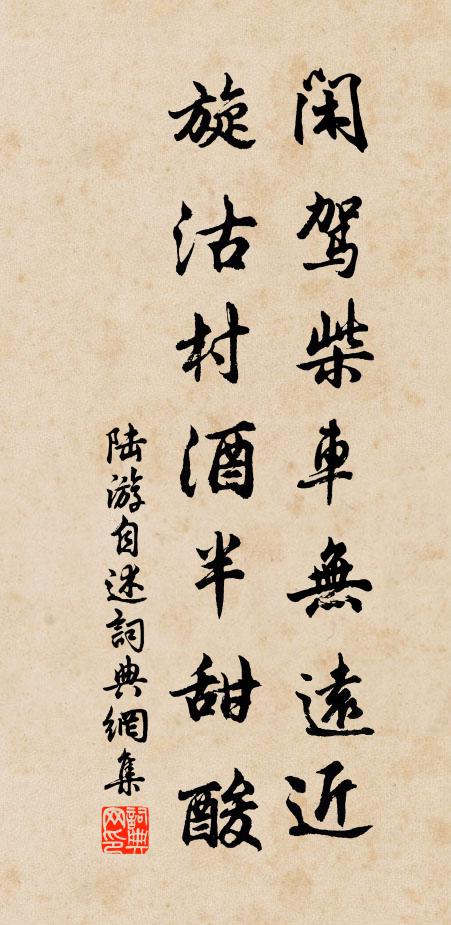 閑駕柴車無遠近
旋沽村酒半甜酸
陆游自述詞典網集
詞典网印